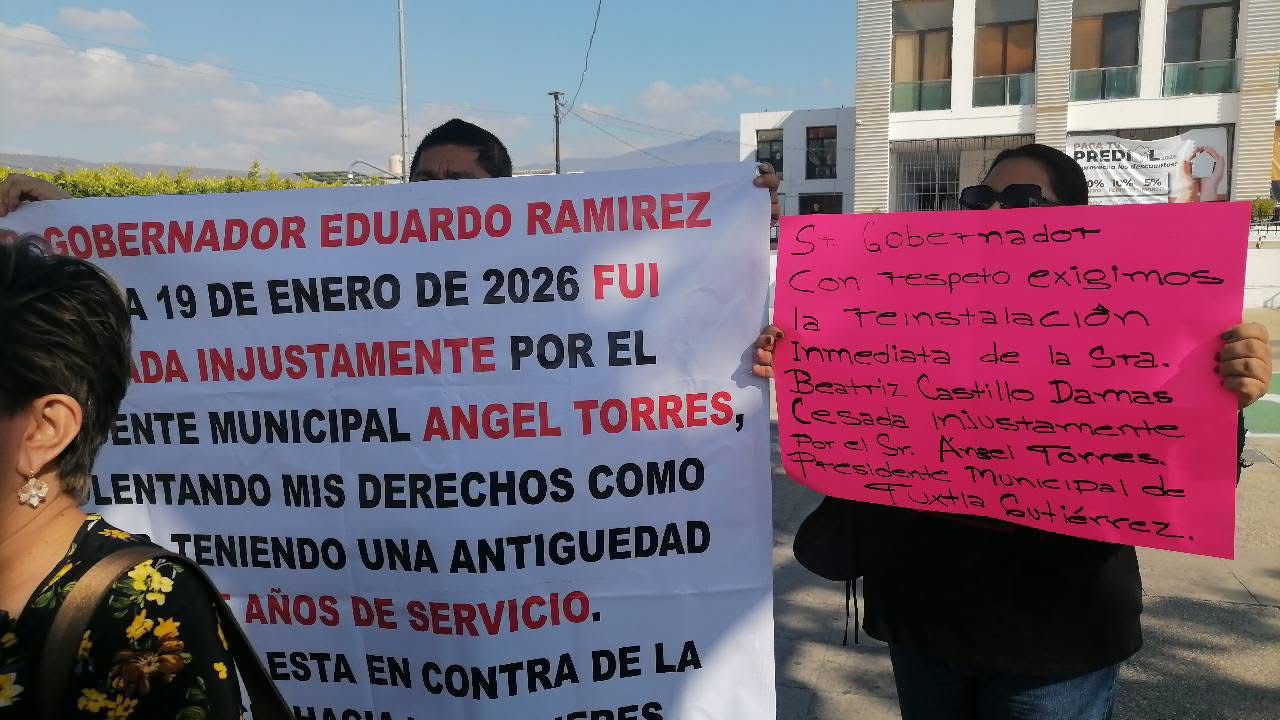 GOBERNADOR EDUARDO RAMIREZ
A 19 DE ENERO DE 2026 FUI
ADA INJUSTAMENTE POR EL
ENTE MUNICIPAL ANGEL TORRES,
LENTANDO MIS DERECHOS COMO
TENIENDO UNA ANTIGUEDAD
AÑOS DE SERVICIO.
ESTA EN CONTRA DE LA
HACIA
Sr Gobernador
Con respeto exigimos
la reinstalación
Inmediata de la Sra.
Beatriz Castillo Damas
Cesada injustamente
Por el Sr. Angel Torres.
Presidente Municipal de
Tuxtla Gutiérrez.
PAGA TU
PREDIAL
10% 5%